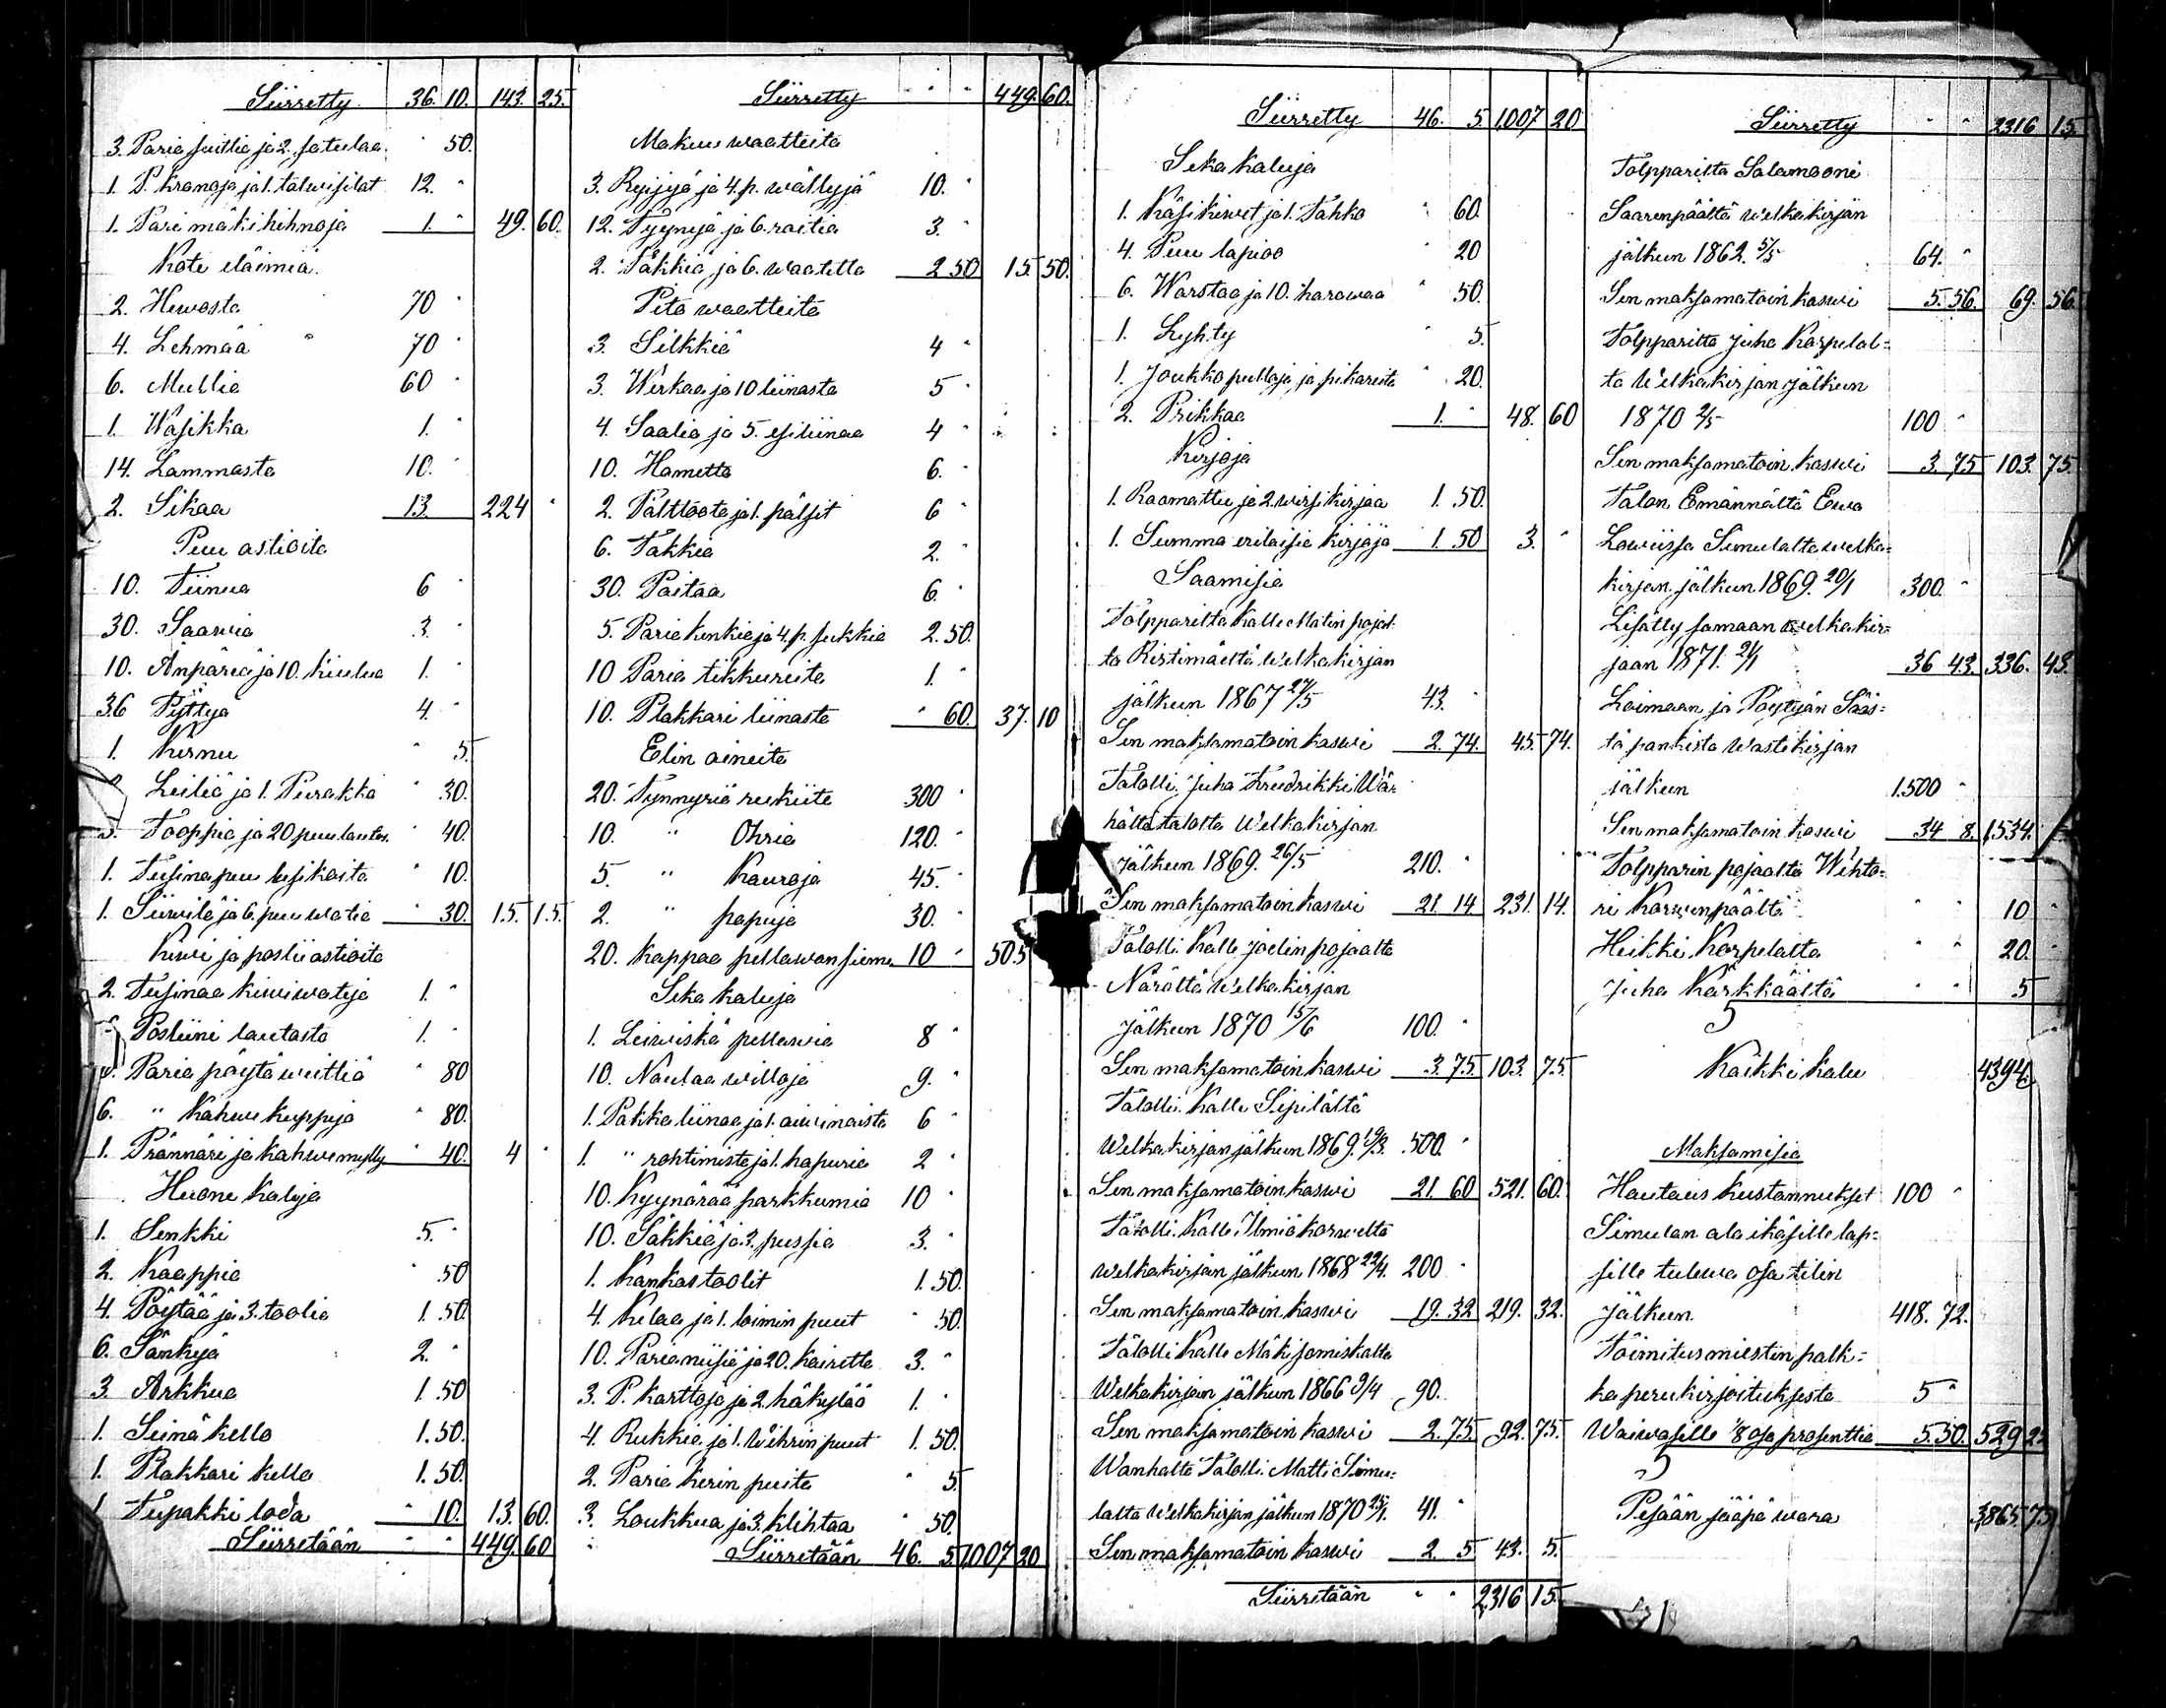 Siirretty 36. 10. 143. 25.
3. Paria suitsia ja 2. satulaa " 50.
1. P. kranoja ja 1. talwisilat 12. "
1. Pari mäkihihnoja 1. " 49. 60.
Koti eläimiä.
2. Hewosta 70 "
4. Lehmää 70 "
6. Mullia 60 "
1. Wasikka 1. "
14. Lammasta 10. "
2. Sikaa 13. 224 "
Puu astioita
10. Tiinua 6 "
30. Saawia 3. "
10. Ämpäriä ja 10. kiulua 1. "
36 Pyttyä 4. "
1. Kirnu " 5.
Leiliä ja 1. Purakka " 30.
Tooppia ja 20 puulautas. " 40.
1. Tusina puu lusikoita " 10.
1. Siiwilä ja 6. puu watia " 30. 15. 15.
Kiwi ja posliiastioita
2. Tusinaa kiwiwateja 1. "
Posliini lautasta 1. "
Paria pöytä weittiä " 80
6. " Kahwe kuppija " 80.
1. Prännäri ja kahwemylly " 40. 4 "
Huone Kaluja
1. Senkki 5. "
2. Kaappia " 50
4. Pöytää ja 3. toolia 1. 50.
6. Sänkyä 2. "
3. Arkkua 1. 50
1. Seinä kello 1. 50.
1. Plakkari kello 1. 50.
1. Tupakki loda " 10. 13. 60.
Siirretään " " 449. 60
Siirretty " " 449. 60.
Makuu waatteita
3. Ryijyä ja 4. p. wällyjä 10. "
12. Tyynyä ja 6. raitia 3. "
2. Täkkiä ja 6. waatetta 2 50 15. 50.
Pito waatteita
3. Silkkiä 4 "
3. Werkaa ja 10 liinasta 5 "
4. Saalia ja 5. esiliinaa 4 "
10. Hametta 6. "
2. Palttoota ja 1. pälsit 6 "
6. Takkia 2. "
30. Paitaa 6. "
5. Paria kenkiä ja 4. p. sukkia 2. 50.
10 Paria tikkureita 1. "
10. Plakkari liinasta " 60. 37. 10
Elin aineita
20. Tynnyriä rukiita 300 "
10. " Ohria 120. "
5. " Kauroja 45. "
2. " papuja 30. "
20. Kappaa pellawansieme 10 " 505
Seka kaluja
1. Leiwiskä pellawia 8 "
10. Naulaa willoja 9. "
1. Pakka liinaa ja 1. aiwinaista 6 "
1. " rohtimista ja 1. hapuria 2 "
10. Kyynärää parkkumia 10 "
10. Säkkiä ja 3. pussia 3. "
1. Kankas toolit 1. 50.
4. Kelaa ja 1. loimin puut " 50.
10. Paria niisiä ja 20. kairetta 3. "
3. P. karttoja ja 2. häkylää 1. "
4. Rukkia ja 1. wihrin puut 1. 50.
2. Paria kerin puita " 5.
3. Loukkua ja 3. klihtaa " 50.
Siirretään 46. 5 1,007 20
Siirretty 46. 5. 1,007 20
Seka kaluja
1. Käsikiwet ja 1. Tahko " 60.
4. Puu lapioo " 20
6. Warstaa ja 10. harawaa " 50.
1. Lyhty " 5.
1. Joukko pulloja ja pikareita " 20.
2. Prikkaa 1. " 48. 60
Kirjoja
1. Raamattu ja 2. wirsikirjaa 1. 50.
1. Summa erilaisia kirjoja 1. 50 3. "
Saamisia
Tolpparilta Kalle Matin pojal-
ta Ristimäeltä Welkakirjan
jälkeen 1867 27/5 43. "
Sen maksamatoin kaswi 2. 74. 45. 74.
Talolli. Juha Freedrikki Wär
hältä talolta Welkakirjan
Jälkeen 1869. 26/5 210. "
Sen maksamatoin kaswi 21. 14 231. 14.
Talolli. Kalle joelin pojaalta
Närältä Welkakirjan
Jälkeen 1870 15/6 100. "
Sen maksamatoin kaswi 3. 75. 103. 75.
Talolli. Kalle Sipilältä
Welkakirjan jälkeen 1869. 19/3. 500. "
Sen maksamatoin kaswi 21. 60 521. 60.
Talolli. Kalle Ilmiökorwelta
welkakirjan jälkeen 1868 22/4. 200 "
Sen maksamatoin kaswi 19. 32 219. 32.
Talolli Kalle Mäkisomiskalta
Welkakirjan jälkeen 1866 9/4 90.
Sen maksamatoin kaswi 2. 75. 92. 75.
Wanhalta Talolli. Matti Simu-
lalta Welkakirjan jälkeen 1870 25/1. 41. "
Sen maksamatoin kaswi 2. 5 43. 5.
Siirretään " " 2,316 15.
Siirretty " " 2316 15.
Tolpparilta Salamooni
Saarenpäältä welkakirjan
jälkeen 1862. 5/5 64. "
Sen maksamatoin kaswi 5. 56. 69. 56.
Tolpparilta Juha Karpelal-
ta Welkakirjan Jälkeen
1870 2/5 100 "
Sen maksamatoin kaswi 3. 75 103. 75.
Talon Emännältä Ewa
Lowiisa Simulalta welka-
kirjan jälkeen 1869. 20/1 300. "
Lisätty samaan welkakir-
jaan 1871. 21/1 36 43. 336. 43.
Loimaan ja Pöytyän Sääs-
tö pankista Wastakirjan
jälkeen 1.500 "
Sen maksamatoin kaswi 34 8. 1,534.
Tolpparin pojaalta Wihto-
ri Karwenpäältä " " 10 "
Heikki Karpelalta " " 20. "
Juha Kärkkäältä " " 5
Kaikki kalu 4394
Maksamisia
Hautaus kustannukset 100 "
Simulan ala ikäsille lap-
sille tulewa osa tilin
Jälkeen 418. 72.
Toimitusmiesten palk-
ka perukirjoituksesta 5 "
Waiwasille 1/8 osa prosenttia 5. 50. 529 22
Pesään jääpä wara 3,865 75